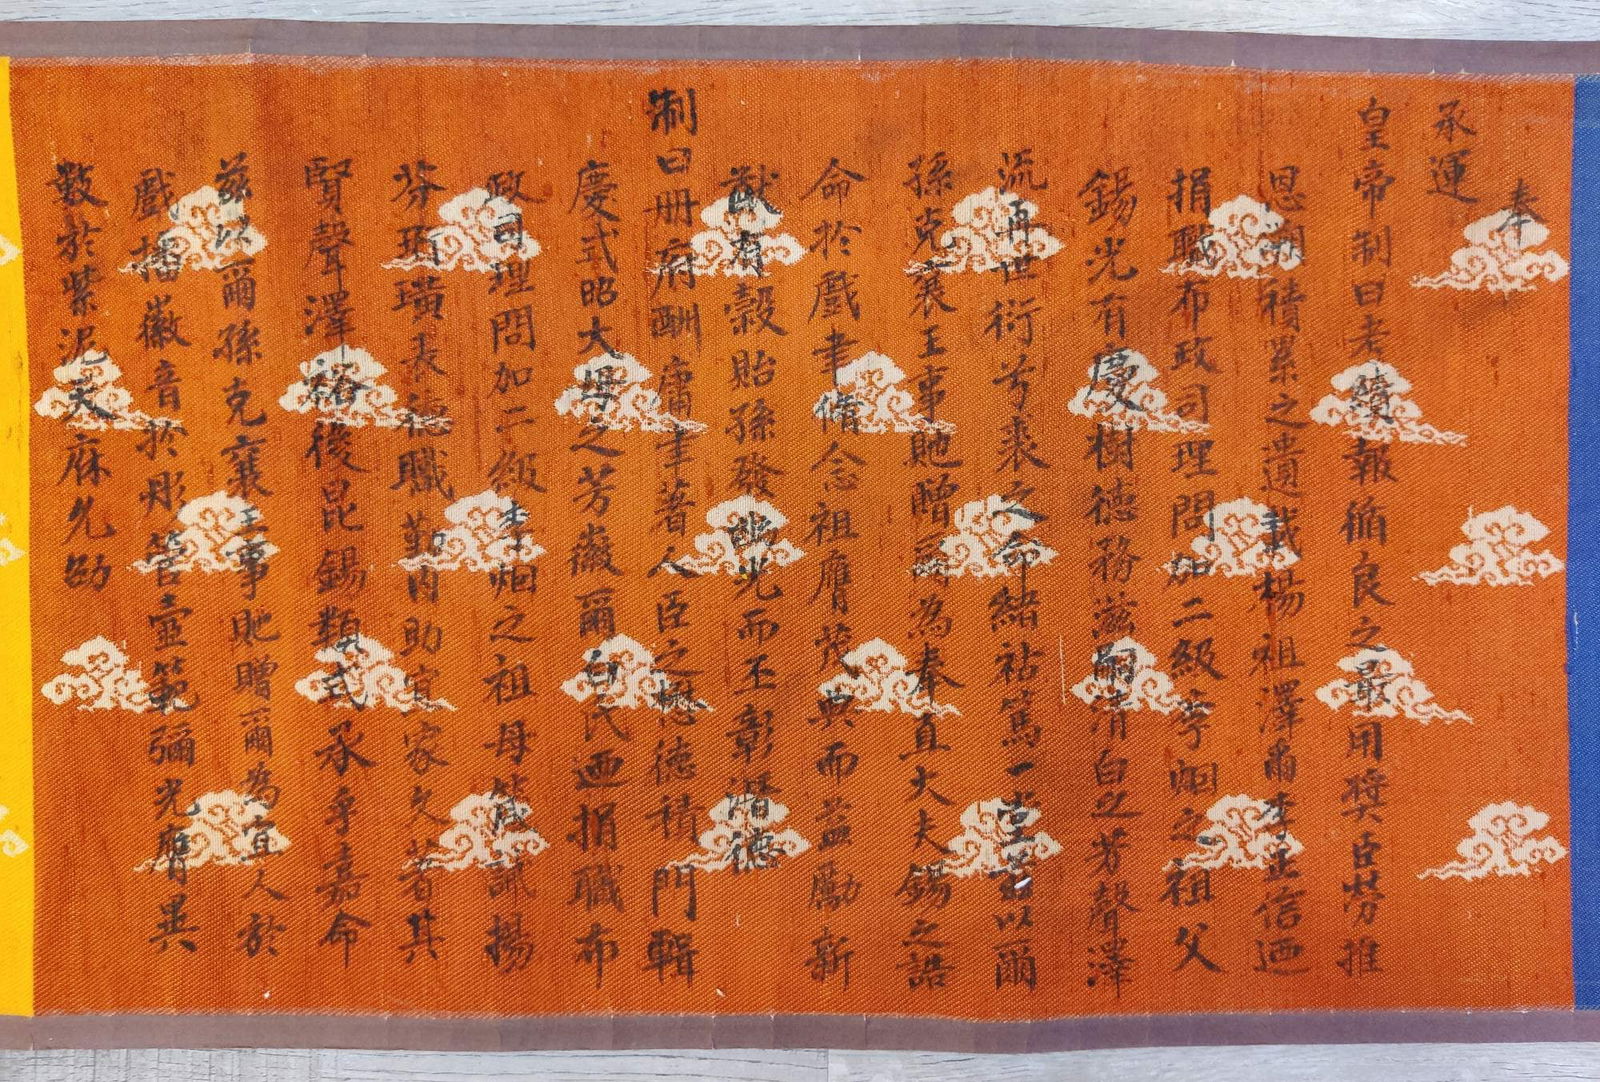 奉
承運
皇帝制曰考績報循良之最用奬臣勞推
恩溯積累之遺載楊祖澤爾李正信迺
捐職布政司理問加二級李烟之祖父
錫光有慶樹德務滋嗣清白之芳聲澤
流再世衍弓裘之令緒祜篤一堂茲以爾
孫克襄王事貤贈爾為奉直大夫錫之誥
命於戲聿脩念祖膺茂典而益勵新
猷有穀貽孫發幽光而丕彰潛德
制曰冊府酬庸聿著人臣之懋德積門輯
慶式昭大母之芳徽爾白氏迺捐職布
政司理問加二級李烟之祖母箴誡揚
芬珩璜表德職勤內助宜家久著其
賢聲澤裕後昆錫類式承乎嘉命
茲以爾孫克襄王事貤贈爾為宜人於
戲播徽音於彤管壺範彌光膺異
數於紫泥天庥允劭